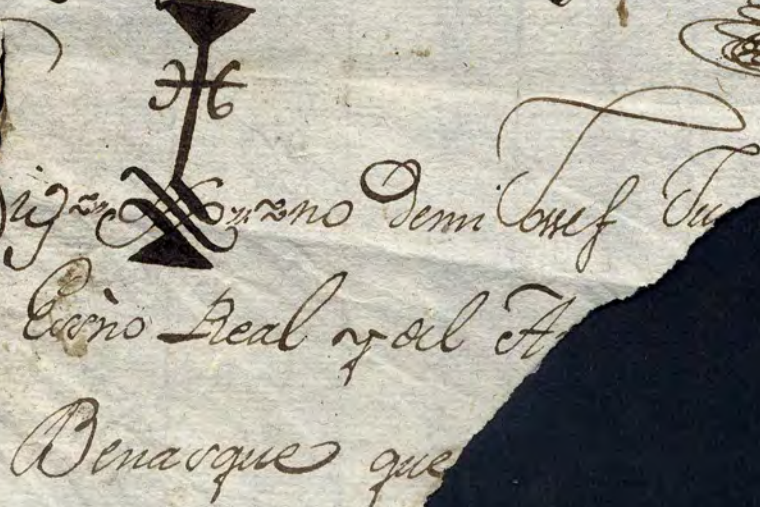 Sig no demi Jossef
Essno Real y del A
Benasque que